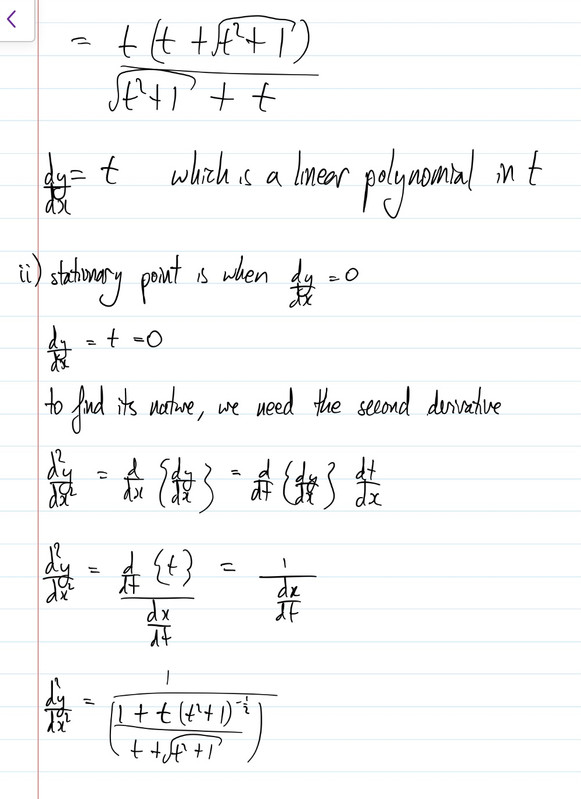 = t (t + √(t²+1)) / (√(t²+1) + t)
dy/dx = t which is a linear polynomial in t
ii) stationary point is when dy/dx = 0
dy/dx = t = 0
to find its nature, we need the second derivative
d²y/dx² = d/dx {dy/dx} = d/dt {dy/dx} dt/dx
d²y/dx² = (d/dt {t}) / (dx/dt) = 1 / (dx/dt)
d²y/dx² = 1 / ((1 + t (t²+1)^(-1/2)) / (t + √(t²+1)))